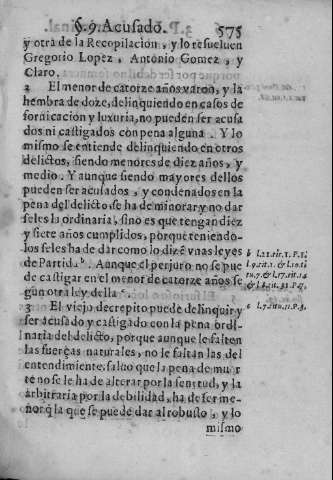 §. 9. Acusado. 575
y otra de la Recopilacion, y lo resueluen
Gregorio Lopez, Antonio Gomez, y
Claro.
2 El menor de catorze años varon, y la
hembra de doze, delinquiendo en casos de
fornicacion y luxuria, no pueden ser acusa
dos ni castigados con pena alguna. Y lo
mismo se entiende delinquiendo en otros
delictos, siendo menores de diez años, y
medio. Y aunque siendo mayores dellos
pueden ser acusados, y condenados en la
pena del delicto se ha de minorar y no dar
seles la ordinaria, sino es que tengan diez
y siete años cumplidos, porque teniendo-
los se les ha de dar como lo dizē vnas leyes
de Partida b. Aunque el perjuro no se pue
de castigar en el menor de catorze años se
gun otra ley della c.
3 El viejo decrepito puede delinquir y
ser acusado y castigado con la pena ordi-
naria del delicto, porque aunque le falten
las fuerças naturales, no le faltan las del
entendimiento, saluo que la pena de muer
te no se le ha de alterar por la senitud, y la
arbitraria por la debilidad, ha de ser me-
nor q̃ la que se puede dar al robusto, y lo
mismo
b l.21.tit.1.P.1.
l.9.tit.1. & l.10.ti
tu.7. & l.17.tit.14
c l.7.tit.11.P.3.